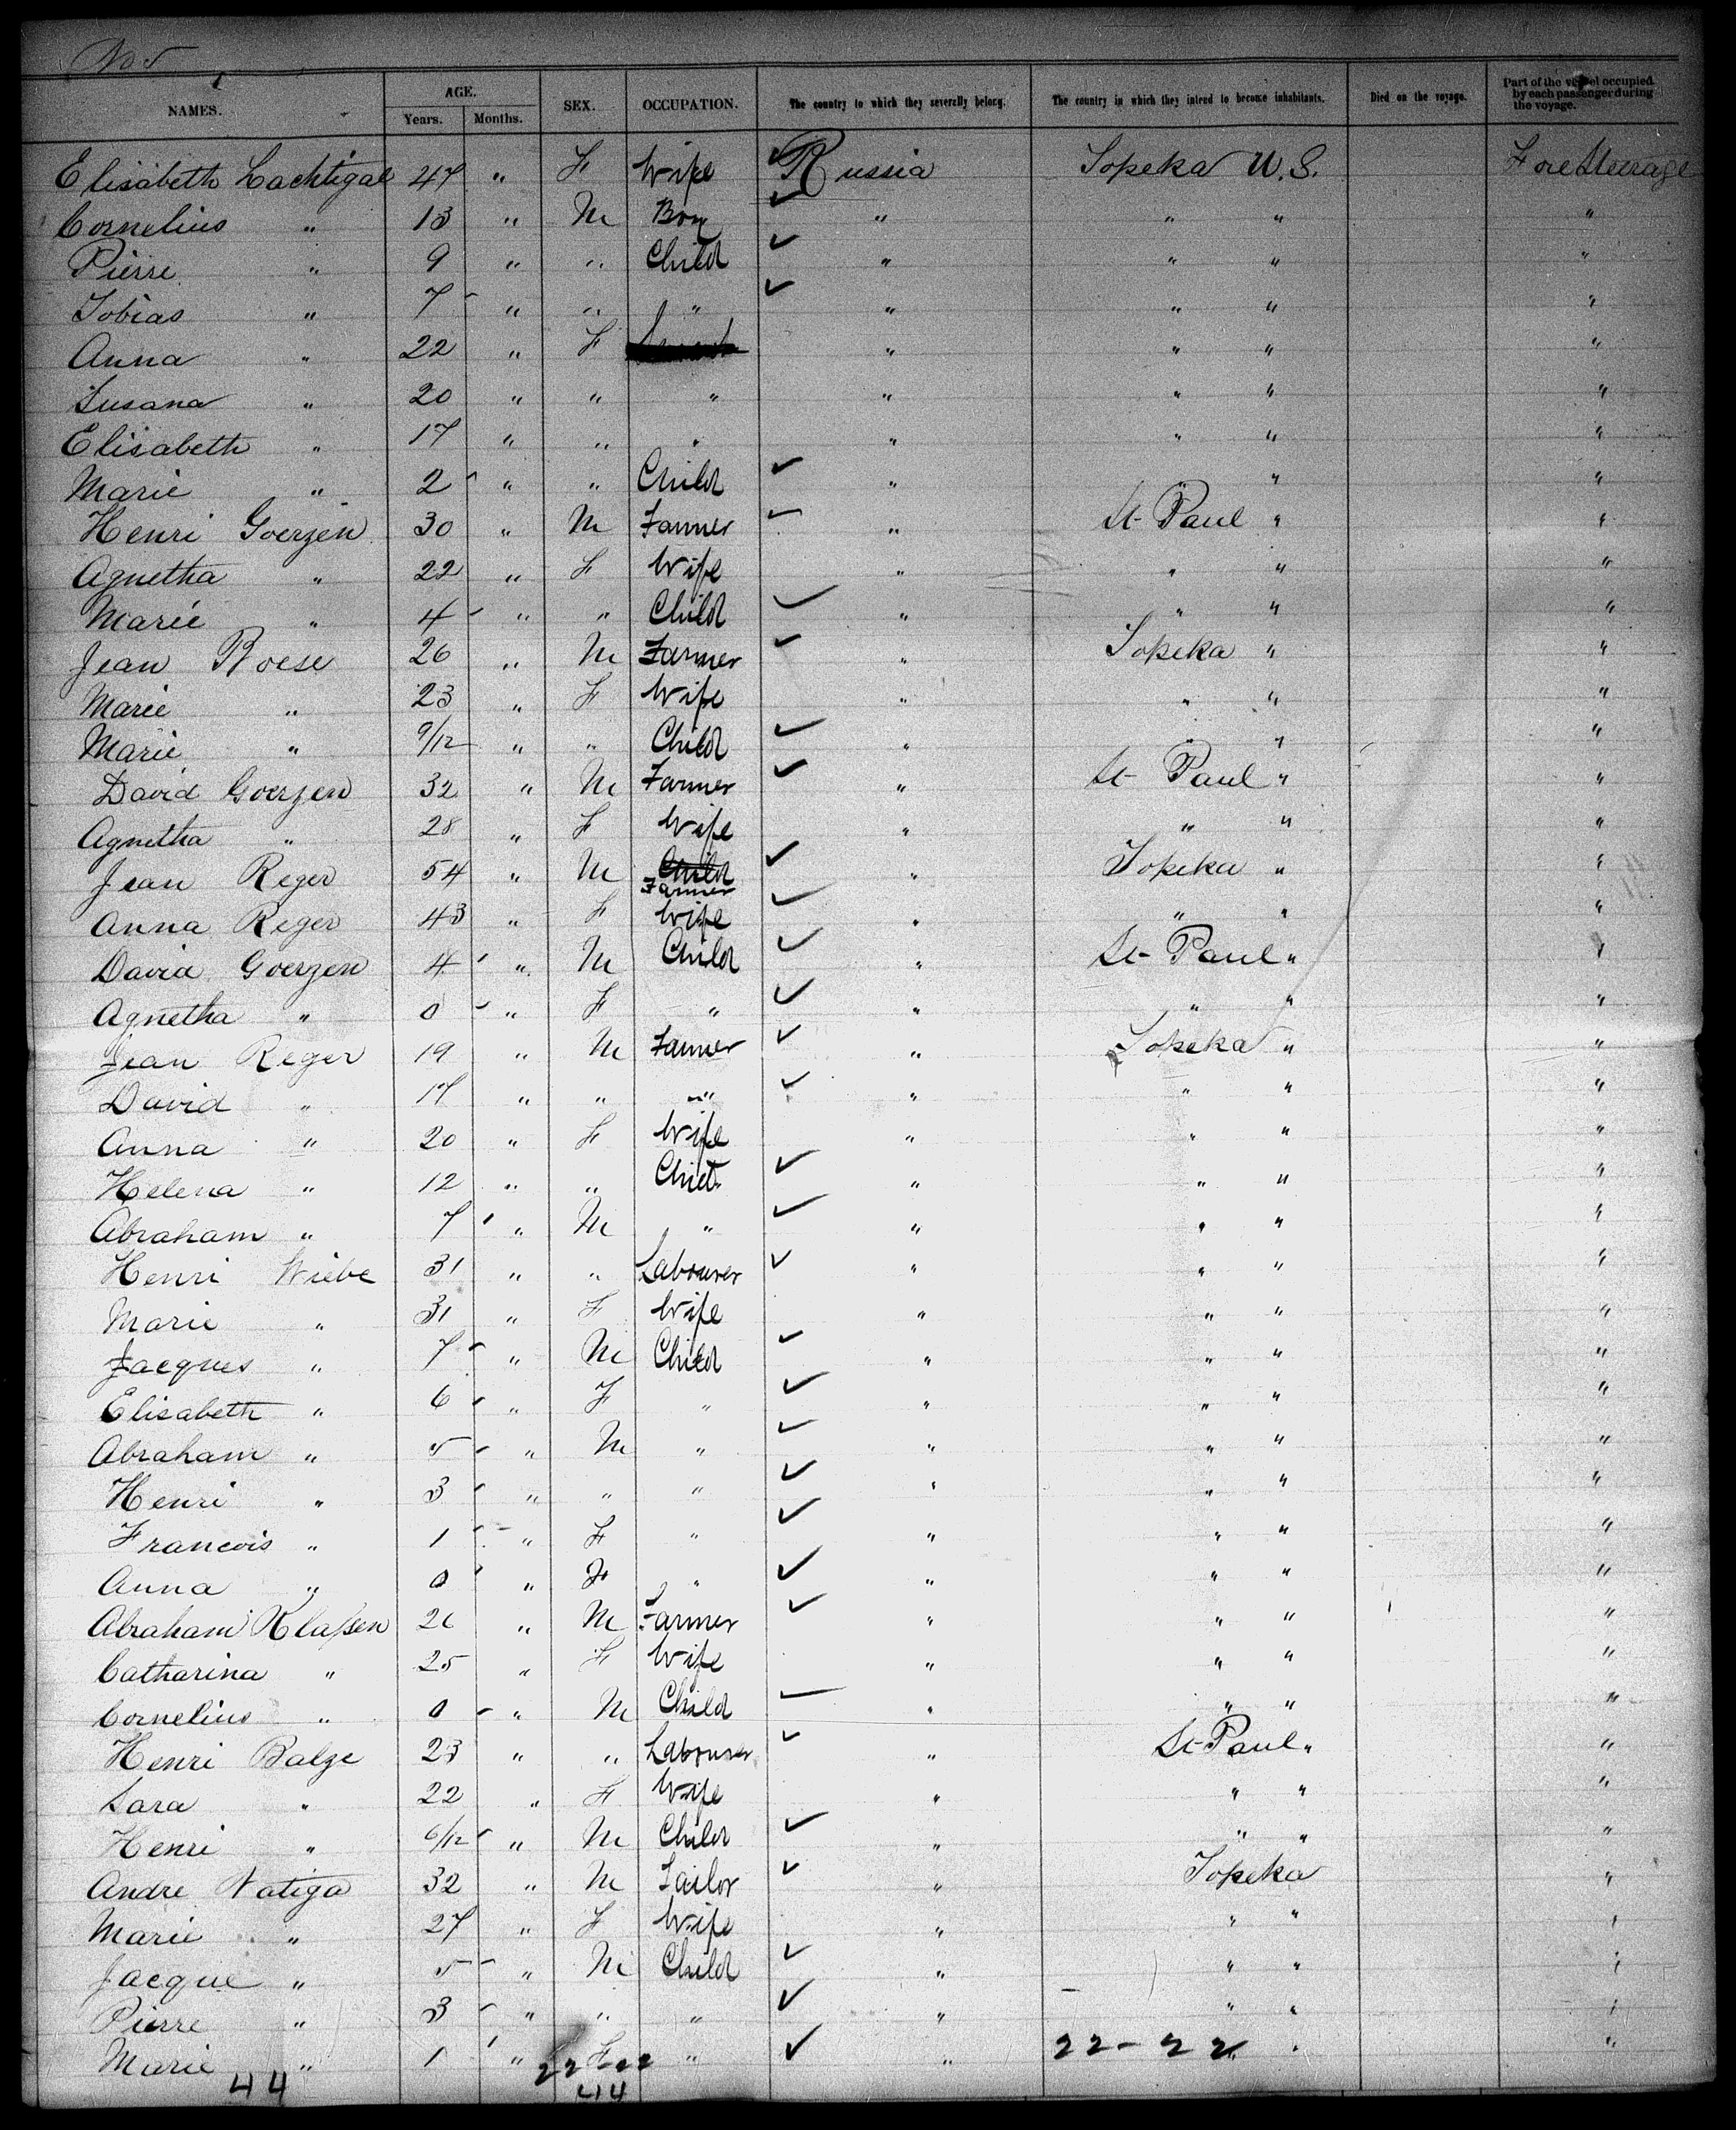 No 5
NAMES. AGE. Years. Months. SEX. OCCUPATION. The country to which they severally belong. The country in which they intend to become inhabitants. Died on the voyage. Part of the vessel occupied by each passenger during the voyage.
Elisabeth Lachtigal 47 " F Wife ✓ Russia Topeka U.S. Fore Steerage
Cornelius " 13 " M Boy ✓ " " " "
Pierre " 9 " " Child ✓ " " " "
Tobias " 7 " " " ✓ " " " "
Anna " 22 " F " " " "
Susana " 20 " " " " " " "
Elisabeth " 17 " " " " " " "
Marie " 2 " " Child ✓ " " " "
Henri Goerzen 30 " M Farmer ✓ " St Paul " "
Agnetha " 22 " F Wife " " " "
Marie " 4 " " Child ✓ " " " "
Jean Boese 26 " M Farmer ✓ " Topeka " "
Marie " 23 " F Wife " " " "
Marie " 9/12 " " Child ✓ " " " "
David Goerzen 32 " M Farmer ✓ " St Paul " "
Agnetha " 28 " F Wife " " " "
Jean Reger 54 " M Child Farmer ✓ " Topeka " "
Anna Reger 43 " F Wife ✓ " " " "
David Goerzen 4 " M Child ✓ " St Paul " "
Agnetha " 0 " F " ✓ " " " "
Jean Reger 19 " M Farmer ✓ " Topeka " "
David " 17 " " " ✓ " " " "
Anna " 20 " F Wife " " " "
Helena " 12 " " ✓ " " " "
Abraham " 7 " M " ✓ " " " "
Henri Wiebe 31 " " Labourer ✓ " " " "
Marie " 31 " F Wife " " " "
Jacques " 7 " M Child ✓ " " " "
Elisabeth " 6 " F " ✓ " " " "
Abraham " 5 " M " ✓ " " " "
Henri " 3 " " " ✓ " " " "
Francois " 1 " F " ✓ " " " "
Anna " 0 " F " ✓ " " " "
Abraham Klaßen 26 " M Farmer ✓ " " " "
Catharina " 25 " F Wife " " " "
Cornelius " 0 " M Child ✓ " " " "
Henri Balze 23 " " Labourer ✓ " St Paul " "
Sara " 22 " F Wife " " " "
Henri " 6/12 " M Child ✓ " " " "
Andre Natiga 32 " M Tailor ✓ " Topeka "
Marie " 27 " F Wife " " " "
Jacque " 5 " M Child ✓ " " " "
Pierre " 3 " " " ✓ " " " "
Marie " 1 " F " ✓ " " " "
44 22-22 22-22
44